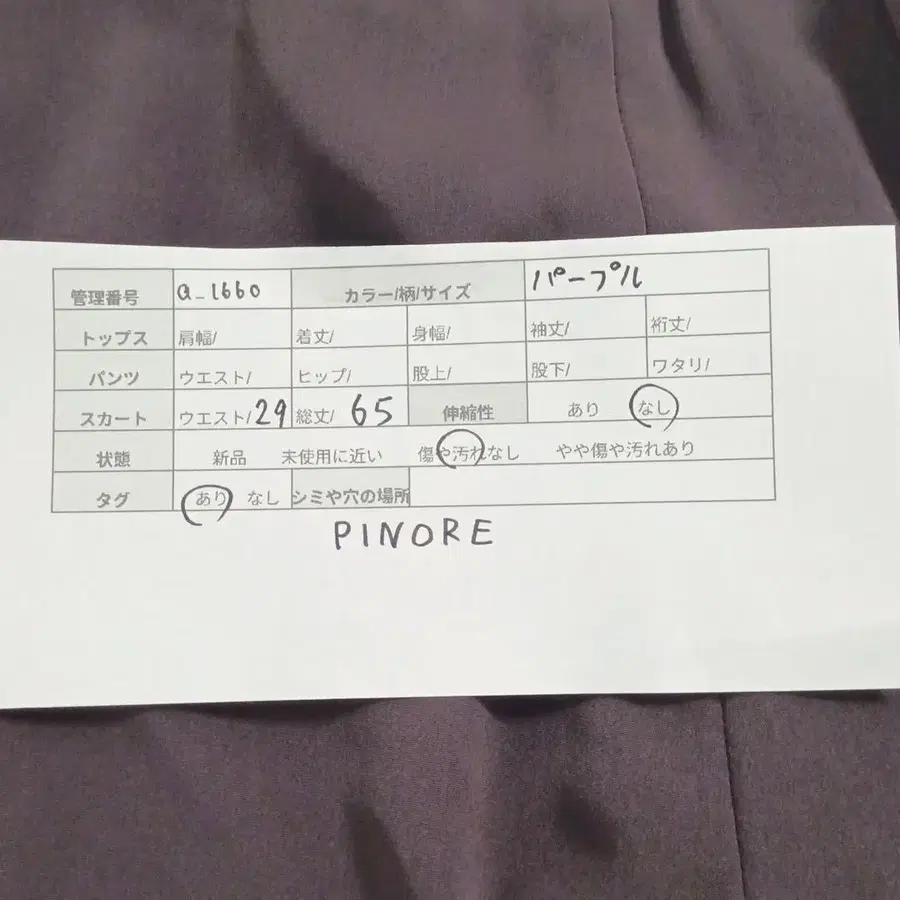 管理番号 a-1660 カラー/柄/サイズ パープル
トップス 肩幅/ 着丈/ 身幅/ 袖丈/ 裄丈/
パンツ ウエスト/ ヒップ/ 股上/ 股下/ ワタリ/
スカート ウエスト/29 総丈/ 65 伸縮性 あり なし
状態 新品 未使用に近い 傷や汚れなし やや傷や汚れあり
タグ あり なし シミや穴の場所
PINORE